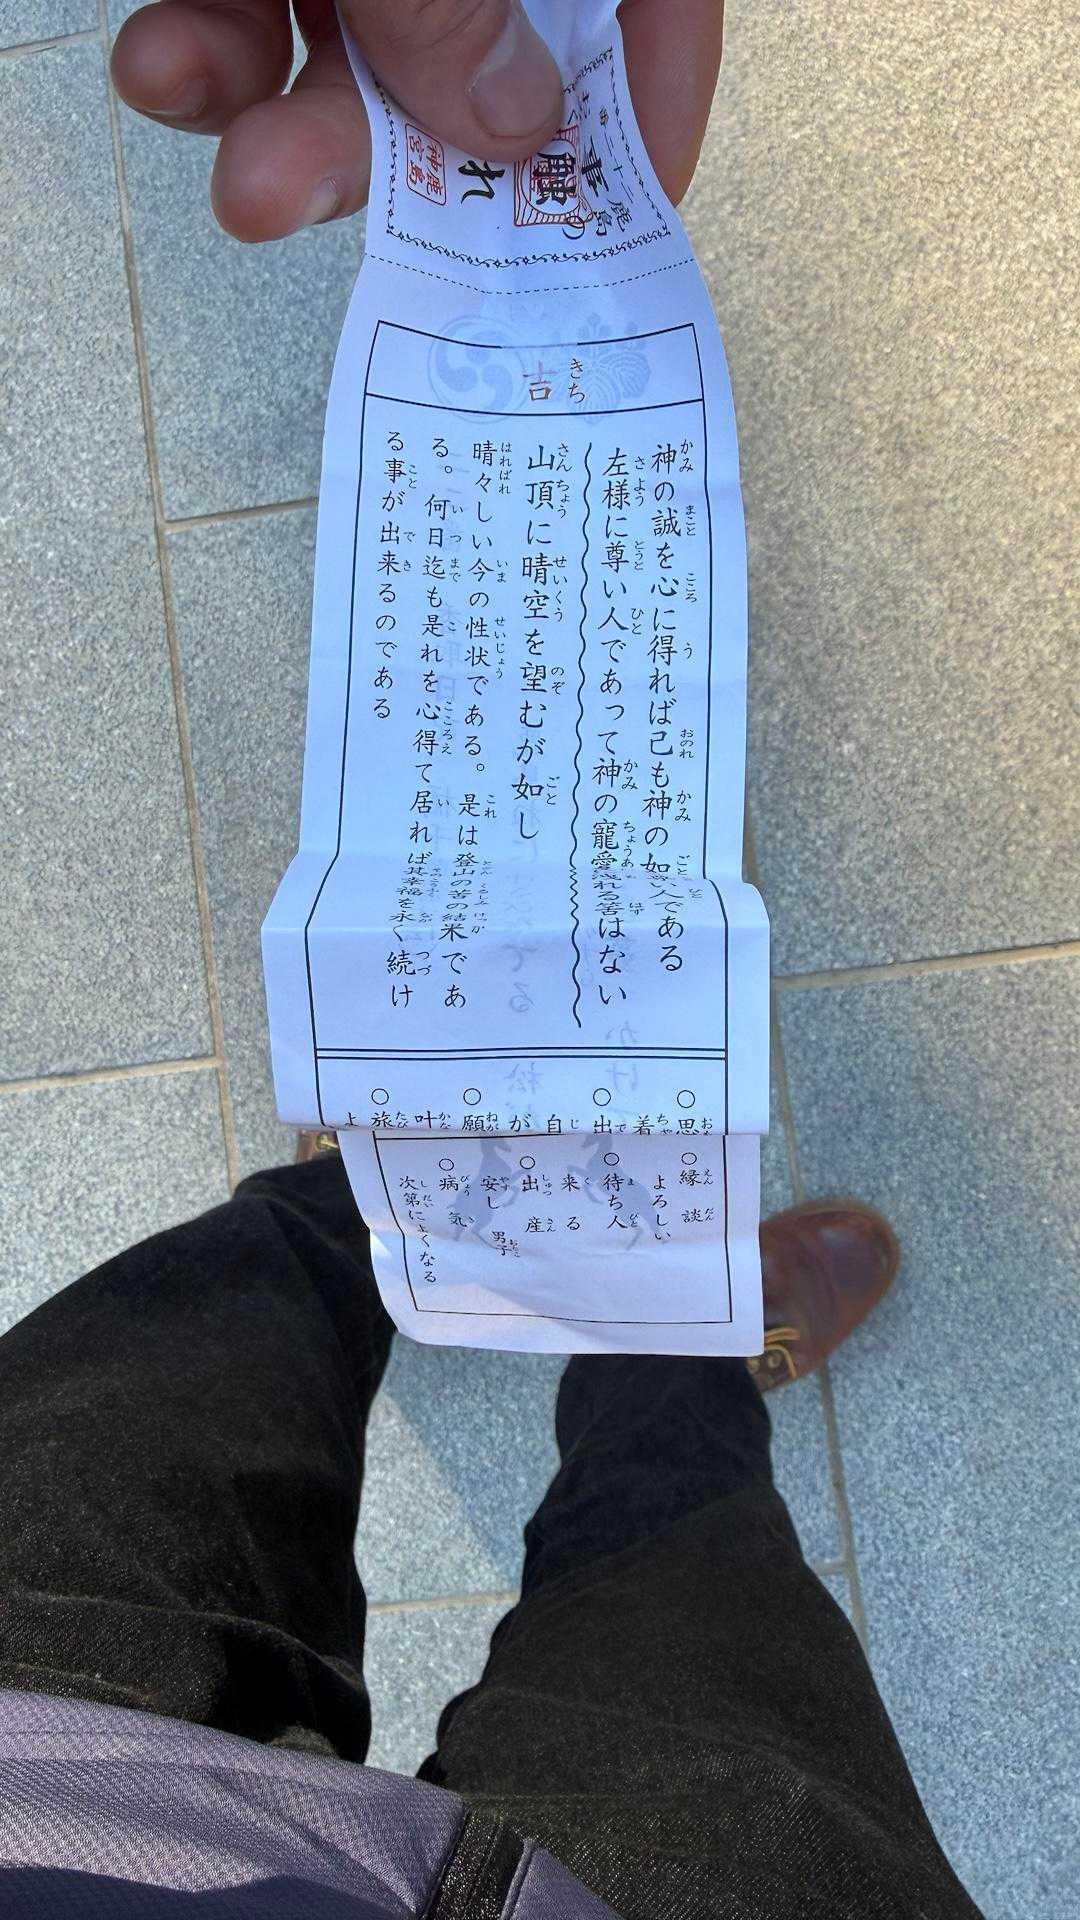 二十二
鹿島
事
の
れ
鹿島
神宮
吉
きち
神の誠を心に得れば己も神の如い人である
左様に尊い人であって神の寵愛洩れる筈はない
山頂に晴空を望むが如し
晴々しい今の性状である。是は登山の苦の結米であ
る。何日迄も是れを心得て居れば其幸福を永く続け
る事が出来るのである
○思
着
○出
自
が
○願
叶
○旅
よ
○縁談
よろしい
○待ち人
来る
○出産
安し 男子
○病気
次第によくなる